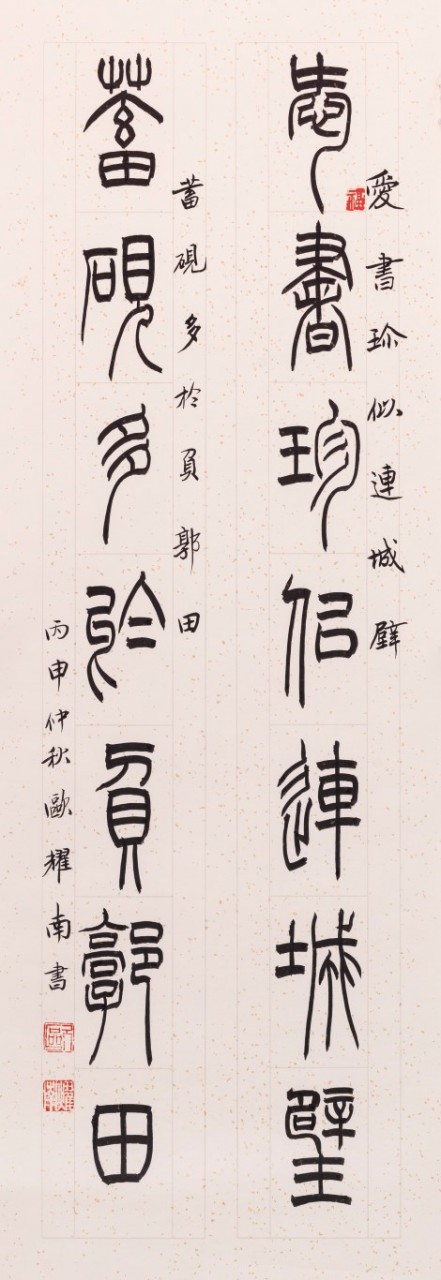 愛書珍似連城璧
福
愛書珍似連城璧
蓄硯多於負郭田
蓄硯多於負郭田
丙申仲秋歐耀南書